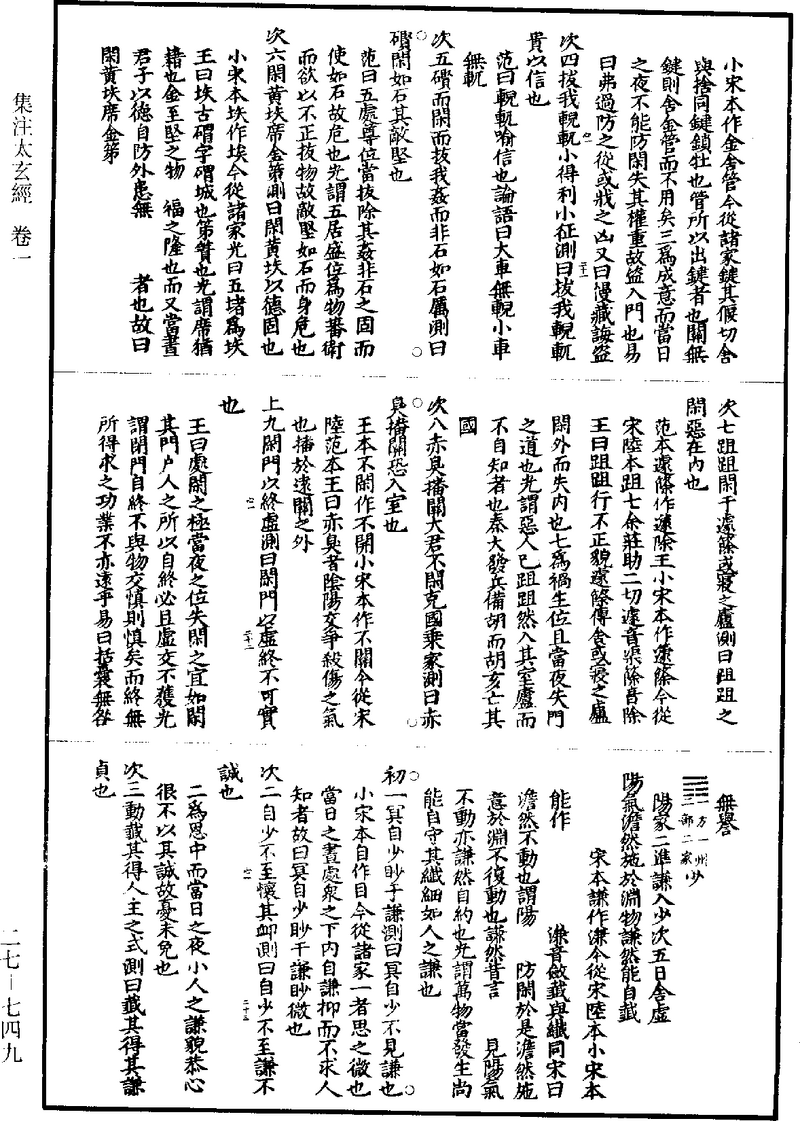 小宋本作金舍管今從諸家鍵其偃切舍
與捨同鍵鎖牡也管所以出鍵者也關無
鍵則舍金管而不用矣三為成意而當日
之夜不能防閑失其權重故盜入門也易
曰弗過防之從或戕之凶又曰慢藏誨盜
次四拔我輗軏小得利小征測曰拔我輗軏
貴以信也
范曰輗軏喻信也論語曰大車無輗小車
無軏
次五礥而閑而拔我姦而非石如石厲測曰
礥閑如石其敵堅也
范曰五處尊位當拔除其姦非石之固而
使如石故危也光謂五居盛位為物蕃衛
而欲以不正拔物故敵堅如石而身危也
次六閑黃垁席金笫測曰閑黃垁以德固也
小宋本垁作埃今從諸家光曰五堵為垁
王曰垁古碢字碢城也笫簀也光謂席猶
籍也金至堅之物 福之隆也而又當晝
君子以德自防外患無 者也故曰
閑黃垁席金笫
次七跙跙閑于蘧篨或寢之廬測曰跙跙之
閑惡在內也
范本蘧篨作蘧除王小宋本作籧篨今從
宋陸本跙七余莊助二切蘧音渠篨音除
王曰跙跙行不正貌蘧篨傳舍或寢之廬
閑外而失內也七為禍生位且當夜失門
之道也光謂惡人已跙跙然入其室廬而
不自知者也秦大發兵備胡而胡亥亡其
國
次八赤臭播關大君不閑克國乘家測曰赤
臭播關恐入室也
王本不閑作不開小宋本作不關今從宋
陸范本王曰赤臭者陰陽交爭殺傷之氣
也播於遠關之外
上九閑門以終虛測曰閑門以虛終不可實
也
王曰處閑之極當夜之位失閑之宜如閑
其門戶人之所以自終必且虛交不獲光
謂閑門自終不與物交慎則慎矣而終無
所得求之功業不亦遠乎易曰括囊無咎
無譽
一方一州
三部二家
少
陽家二準謙入少次五日舍虛
陽氣澹然施於淵物謙然能自韱
宋本謙作溓今從宋陸本小宋本
能作 溓音斂韱與纖同宋曰
澹然不動也謂陽 防閑於是澹然施
意於淵不復動也謙然昔言 見陽氣
不動亦謙然自約也光謂萬物當發生尚
能自守其纖細如人之謙也
初一冥自少眇于謙測曰冥自少不見謙也
小宋本自作目今從諸家一者思之微也
當日之晝處泉之下內自謙抑而不求人
知者故曰冥自少眇于謙眇微也
次二自少不至懷其䘏測曰自少不至謙不
誠也
二為思中而當日之夜小人之謙貌恭心
很不以其誠故憂未免也
次三動韱其得人主之式測曰韱其得其謙
貞也
集注太玄經 卷一
二七—七四九